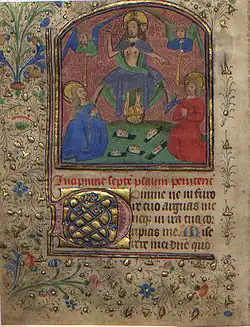 Incipiunt septe psalmi peniten
Domine ne in furo
re tuo arguas me
neq in ira tua cor
ripias me Mise
rere mei dne quo